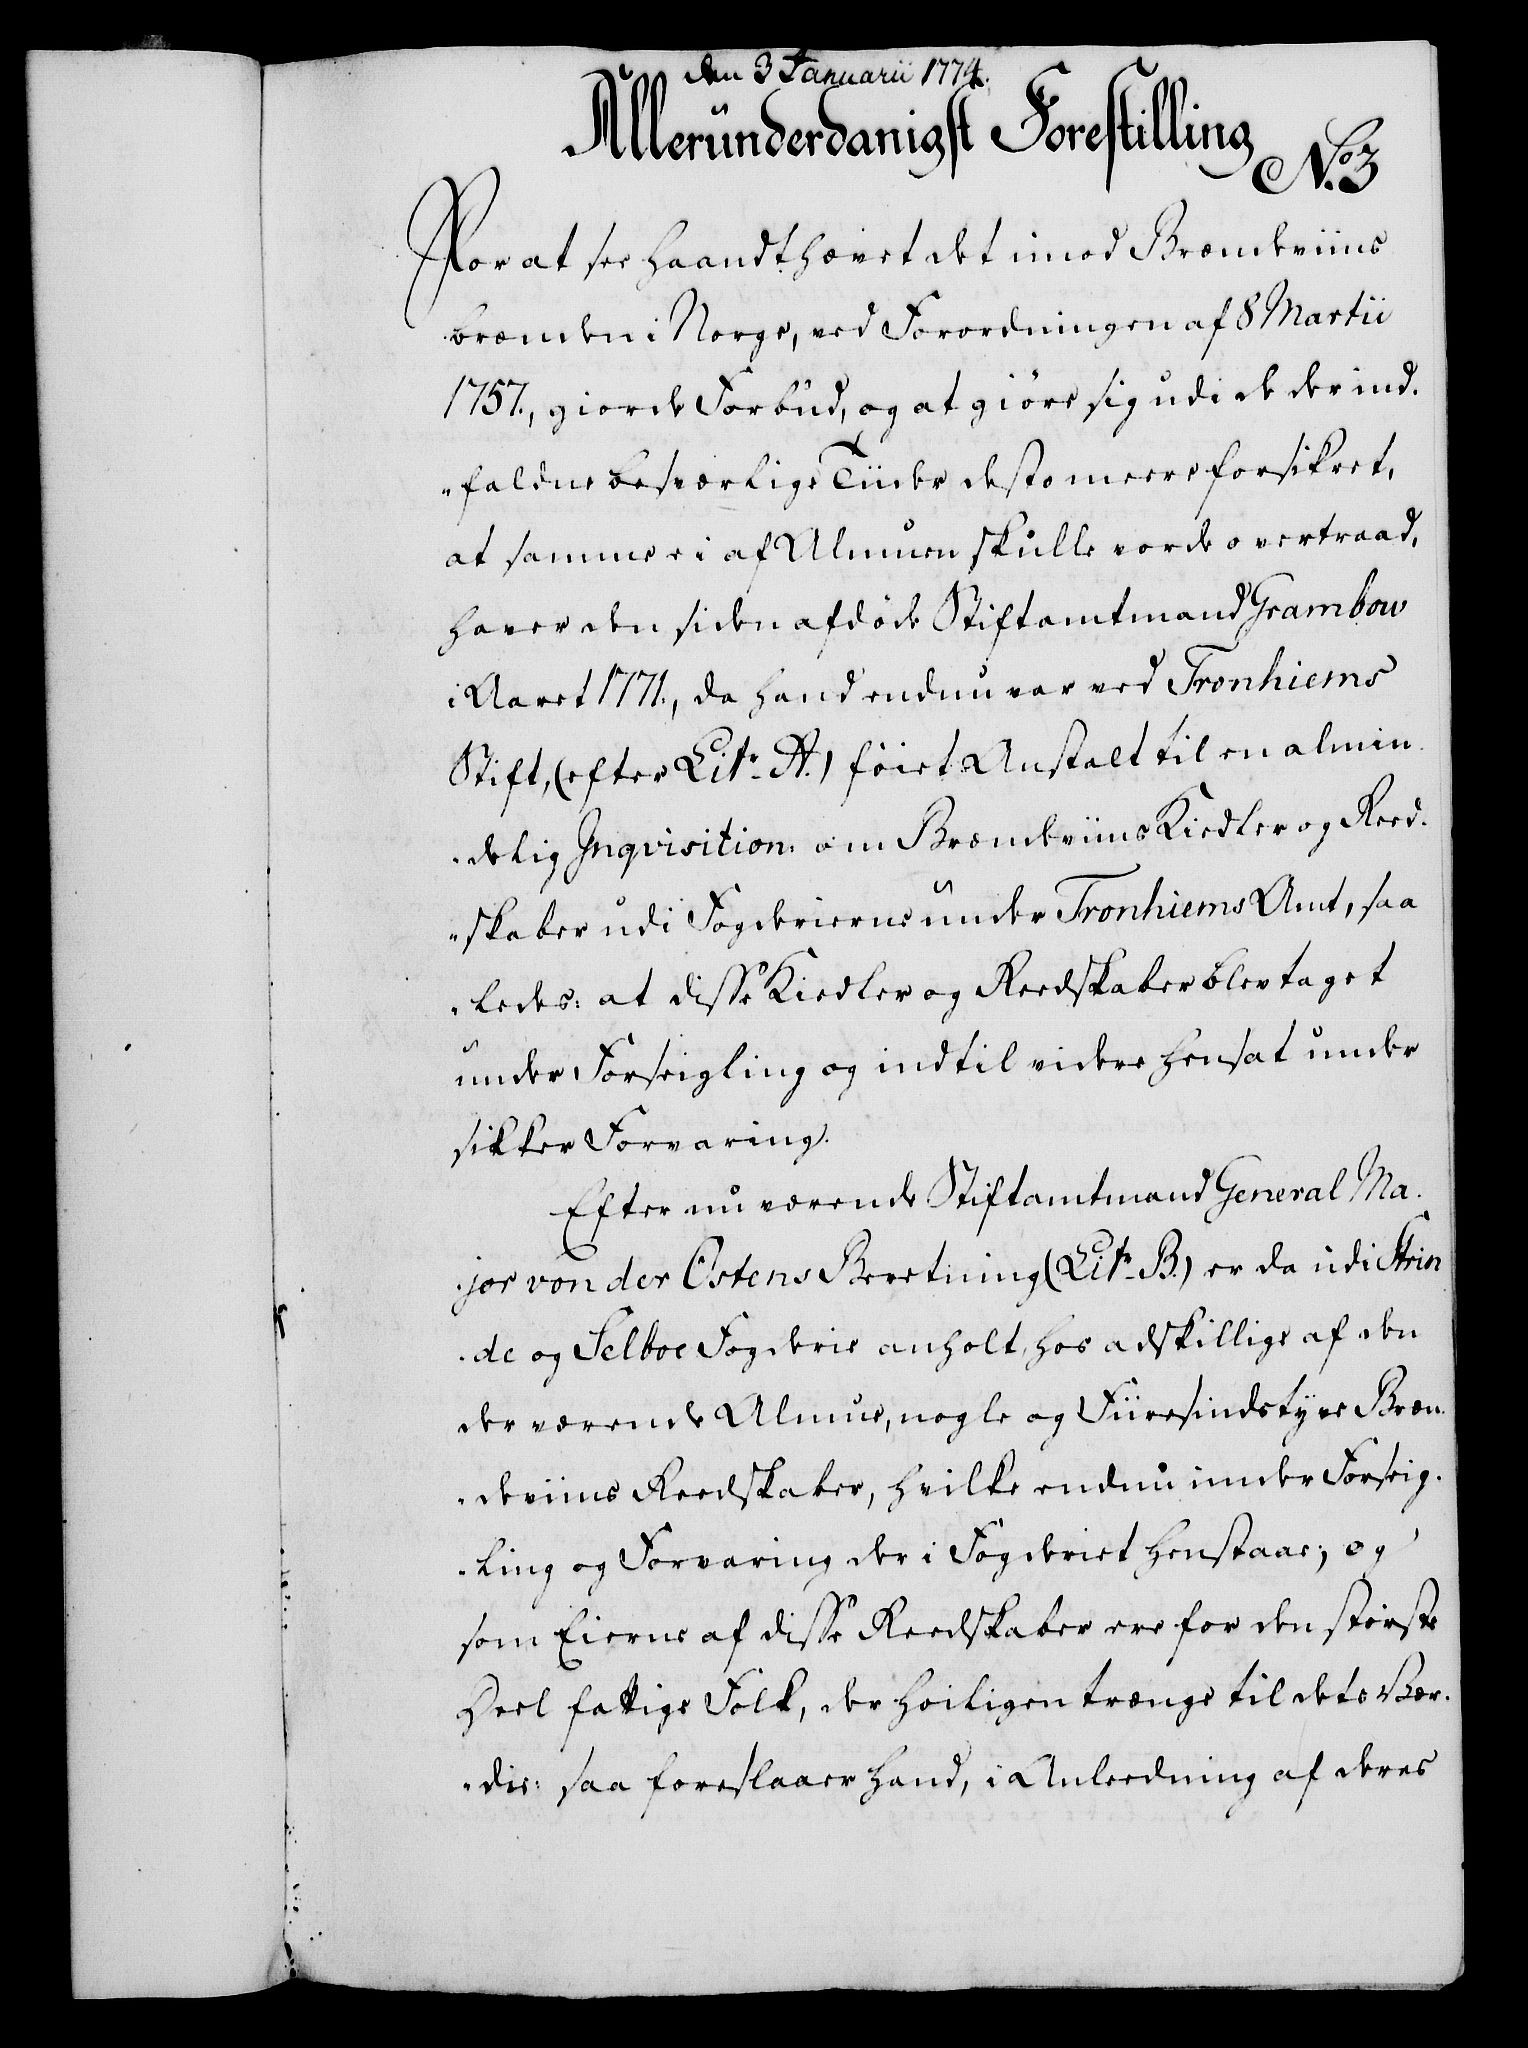 den 3 Januarii 1774.
Allerunderdanigst Forestilling
No. 3
For at see haandthævet det imod Brændeviins
brænden i Norge, ved Forordningen af 8 Martii
1757., giorde Forbud, og at giöre sig udi de der ind-
-faldne besværlige Tiider desto meere forsikret,
at samme ei af Almuen skulle vorde overtraad,
haver den siden afdöde Stiftamtmand Grambow
i Aaret 1771., da hand endnu var ved Tronhiems
Stift, (efter Litr. A.) föiet Anstalt til en almin-
-delig Inqvisition, om Brændeviins Kiedler og Reed-
-skaber udi Fogderierne under Tronhiems Amt, saa
-ledes: at disse Kiedler og Reedskaber blev taget
under Forseigling og indtil videre hensat under
sikker Forvaring.
Efter nu værende Stiftamtmand General Ma-
-jor von der Ostens Beretning (Litr. B.) er da udi Strin
-de og Selboe Fogderie anholt, hos adskillige af den
der værende Almue, nogle og Fiiresindstyve Bræn-
-deviins Reedskaber, hvilke endnu under Forseig-
-ling og Forvaring der i Fogderiet henstaae; og
som Eierne af disse Reedskaber ere for den störste
Deel fattige Folk, der höiligen trænge til dets Vær-
-die: saa foreslaaer hand, i Anleedning af deres